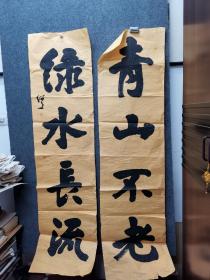 青山不老
绿水長流